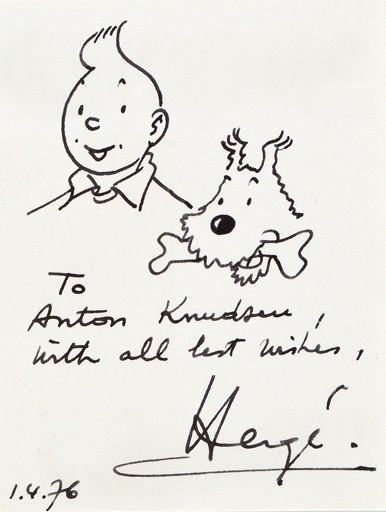 To
Anton Knudsen,
with all best wishes,
Hergé.
1.4.76